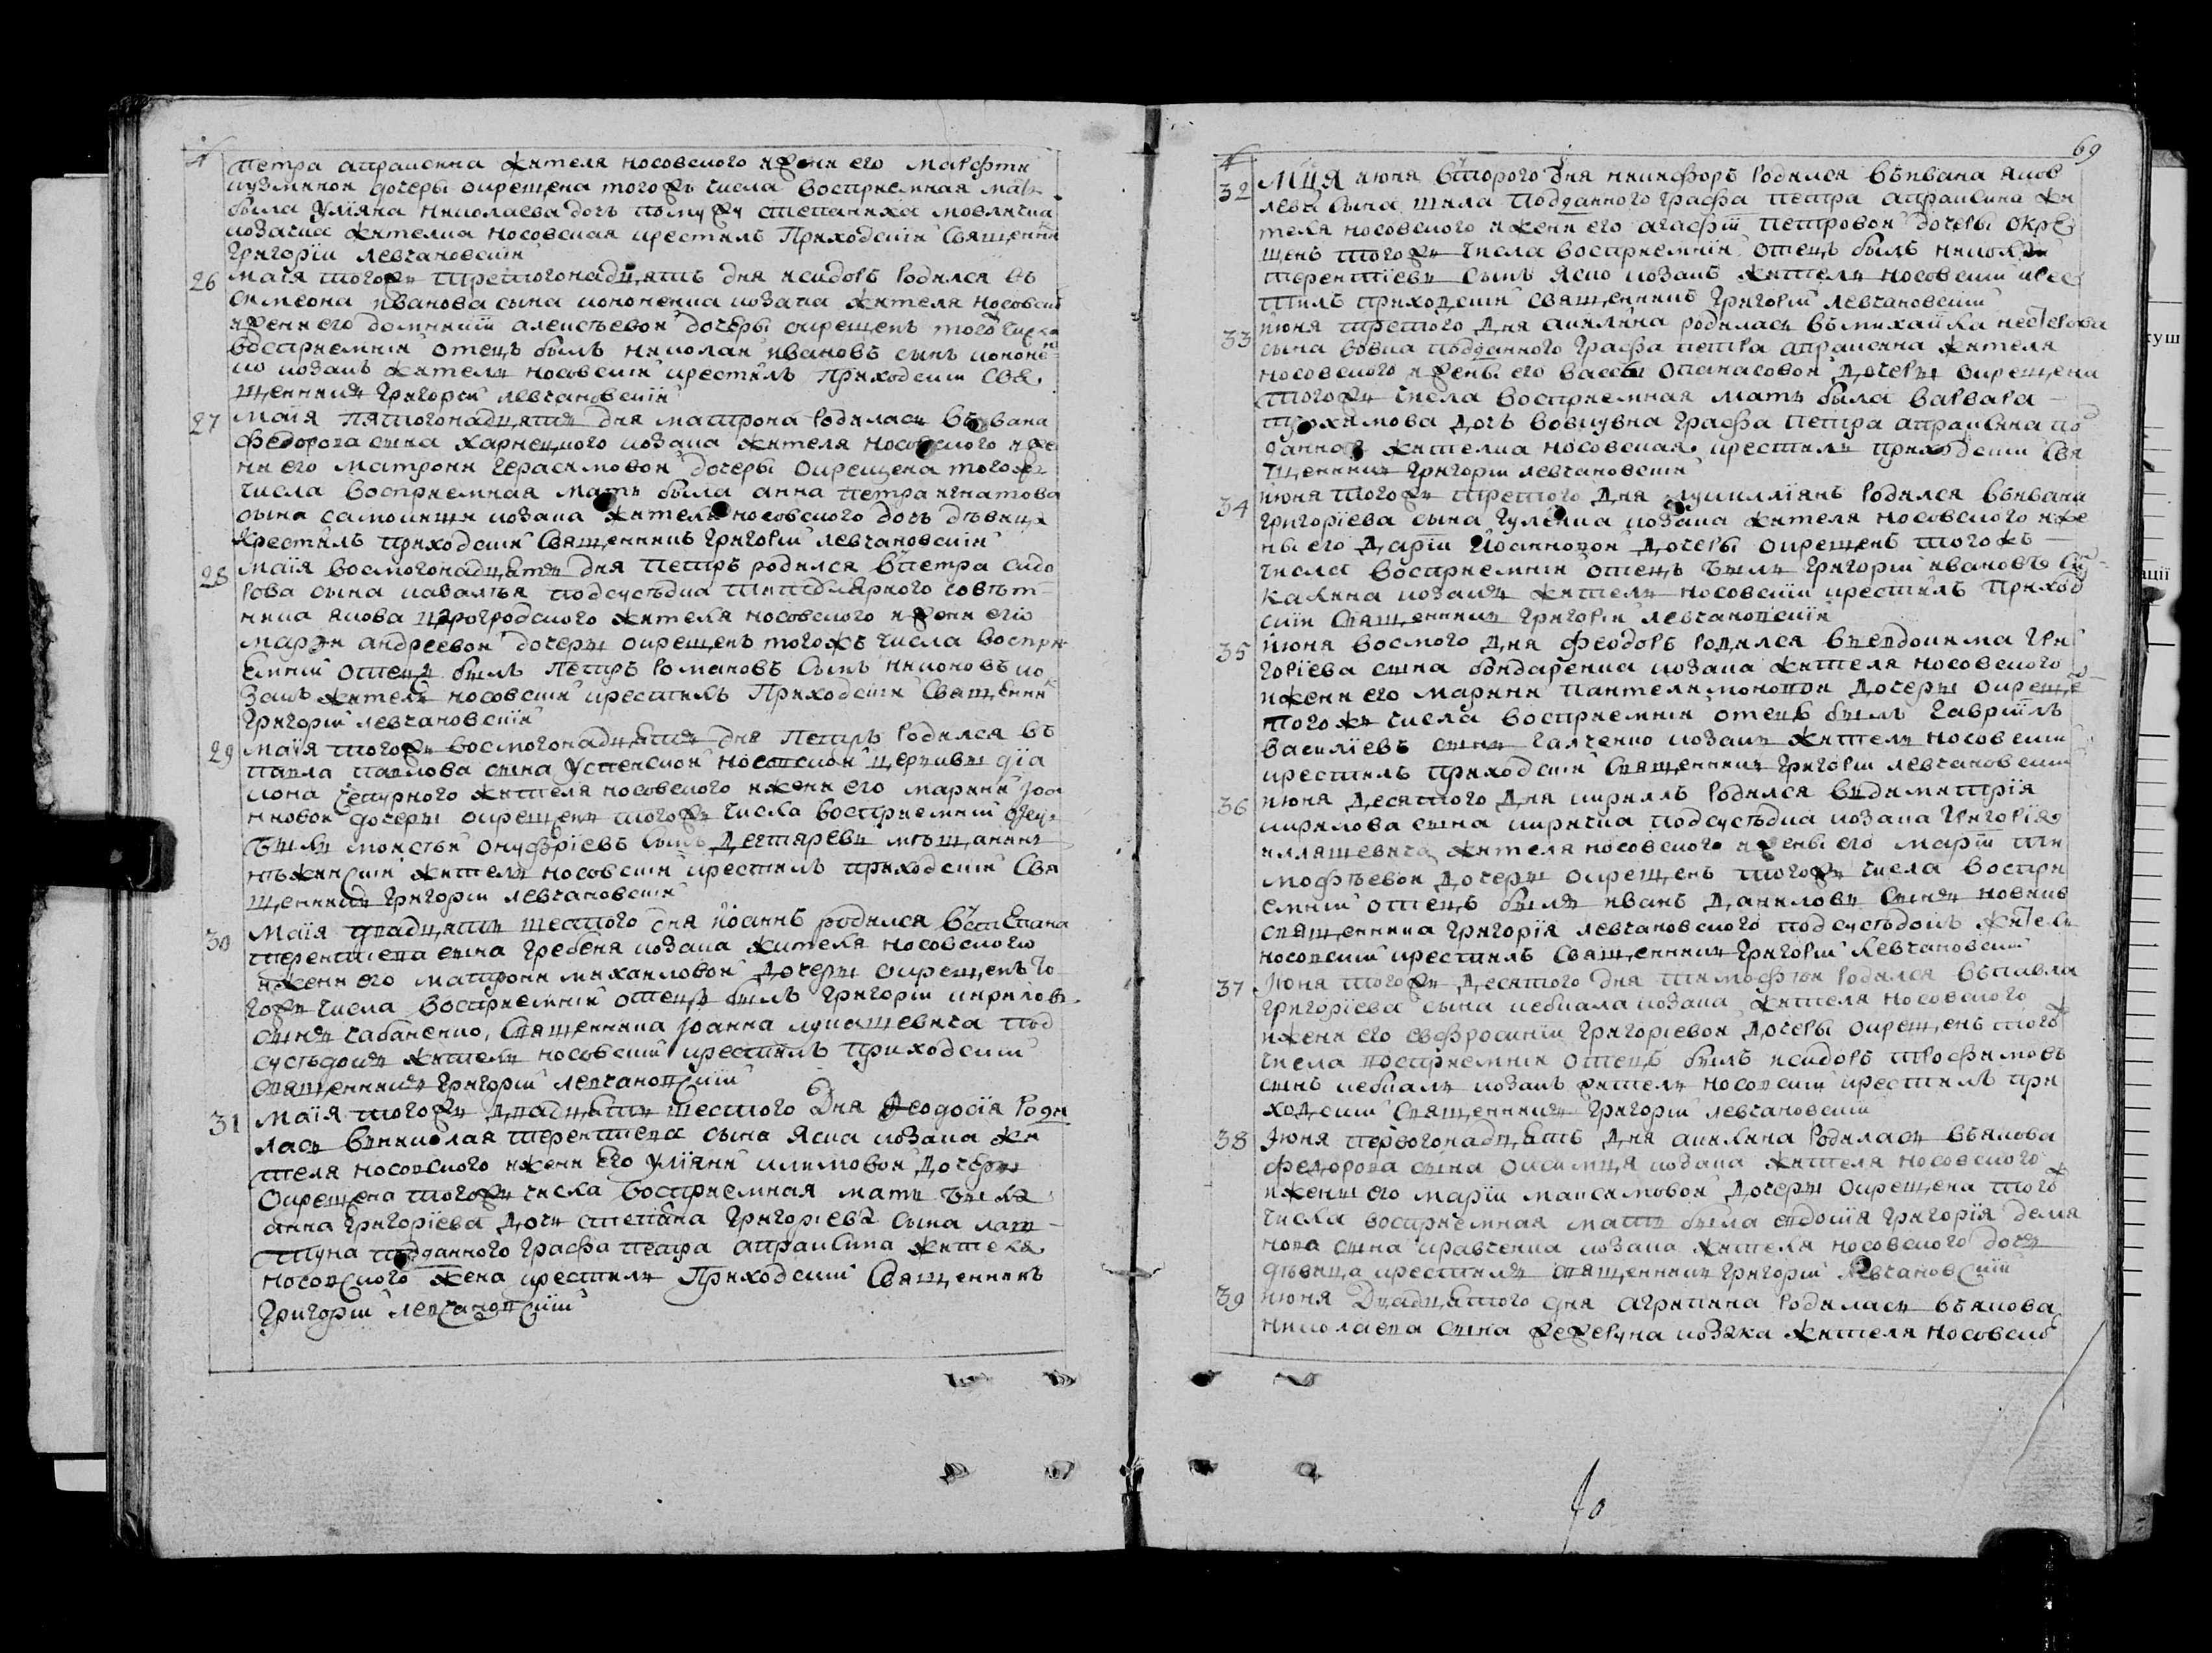 №
петра апраксина жителя носовского и жени его марфти
кузминои дочеры окрещена тогожъ числа восприемная мать
была Улїяна николаева дочъ по мужу степаниха мовличиа
козачка жителка носовская крестилъ Приходскїи Священни
Григорїи Левчановскїи
26 маїя тогожъ третогонадцять дня исидоръ родился въ
симеона иванова сына кононенка козака жителя носовск
и жени его домникїи алексѣевои дочеры окрещенъ того числа
восприемнїи отецъ былъ николаи ивановъ сынъ кононе
ко козакъ житель носовскїи крестилъ Приходскїи Свя
щенникъ Григорїи левчановскїи
27 маїя пятогонадцять дня матрона родилась въ ивана
федорова сына харнецкого козака жителя носовского и же
ни его матрони герасимовои дочеры окрещена тогожъ
числа восприемная мать была анна петра игнатова
сына самокищи козака жителя носовского дочъ дѣвица
крестилъ приходскїи Священникъ Григорїи левчановскїи
28 маїя восмогонадцять дня Петръ родился в петра сидо
рова сына коваля подсусѣдка титулярного совѣт
ника якова цароградского жителя носовского и жени его
марїи андреевои дочеры окрещенъ тогожъ числа воспри
емнїи отецъ былъ Петръ романовъ сынъ никоновъ ко
закъ житель носовскїи крестилъ Приходскїи Священни
Григорїи левчановскїи
29 маїя тогожъ восмогонадцять дня Петръ родился въ
павла павлова сына Успенскои носовскои церкви дїа
кона чепурного жителя носовского и жени его марини іоа
нновои дочеры окрещенъ тогожъ числа восприемнїи отецъ
былъ моисѣи онуфрїевъ сынъ Дегтяревъ мѣщанинъ
нѣжинскїи житель носовскїи крестилъ приходскїи Свя
щенникъ Григорїи левчановскїи
30 Маїя двадцять шестого дня іоаннъ родился въ степана
терентиева сына гребеня козака жителя носовского
и жени его матрони михаиловои дочеры окрещенъ то
гожъ числа восприемнїи отецъ былъ Григорїи кириловъ
сынъ чабаненко, Священника іоанна лукашевича под
сусѣдокъ житель носовскїи крестилъ приходскїи
священникъ Григорїи левчановскїи
31 Маїя тогожъ двадцять шестого Дня Феодосїя Роди
лась въ николая терентиева сына Яска козака жи
теля носовского и жени его улїяни климовои дочеры
окрещена тогожъ числа восприемная мать была
анна Григорїева дочь степана Григорїева сына лат
туна подданного Графа петра апраксина жителя
носовского жена крестилъ Приходскїи Священникъ
Григорїи левчановскїи
69
№
32 Мця июня второго дня никифоръ родился въ ивана яков
лева сына шила подданного Графа петра апраксина жи
теля носовского и жени его агафїи петровои дочеры окре
щенъ тогожъ числа восприемнїи отецъ былъ николаи
терентїевъ сынъ яско козакъ житель носовскїи крес
тилъ приходскїи священникъ Григорїи левчановскїи
33 июня третого дня акилина родилась въ михаила нестерова
сына вовка подданного Графа петра апраксина жителя
носовского и жены его вассы опанасовои дочеры окрещена
тогожъ числа восприемная мать была варвара
трохимова дочъ вовкувна Графа Петра апраксина по
данная жителка носовская крестилъ приходскїи Свя
щенникъ Григорїи левчановскїи
34 июня тогожъ третого дня лукиллїянъ родился въ ивана
григорїева сына Гуленка козака жителя носовского и же
ны его Дарїи Йоанновои дочеры окрещенъ тогожъ
числа восприемнїи отецъ былъ Григорїи ивановъ сы
калина козакъ житель носовскїи крестилъ Приход
скїи Священникъ Григорїи левчановскїи
35 июня восмого дня феодоръ родился въ евдокима гри
горїева сына бондаренка козака жителя носовского
и жени его марини пантелимоновои дочеры окреще
тогожъ числа восприемнїи отецъ былъ Гаврїилъ
василїевъ сынъ Галченко козакъ житель носовскїи
крестилъ приходскїи Священникъ Григорїи левчановскїи
36 июня десятого дня кириллъ родился въ димитрїя
кирилова сына киричка подсусѣдка козака Григорїя
илляшевича жителя носовского и жены его марїи ти
мофѣевои дочеры окрещенъ тогожъ числа воспри
емнїи отецъ былъ иванъ даниловъ сынъ новикъ
священника Григорїя левчановского подсусѣдокъ житель
носовскїи крестилъ Священникъ Григорїи левчановскїи
37 Июня тогожъ десятого дня тимофѣи родился въ павла
григорїева сына кебкала козака жителя носовского
и жени его евфросинїи григорїевои дочеры окрещенъ тогож
числа восприемнїи отецъ былъ исидоръ трофимовъ
сынъ кебкалъ козакъ житель носовскїи крестилъ при
ходскїи священникъ Григорїи левчановскїи
38 Июня первогонадцять дня акилина родилась въ якова
федорова сына оксимця козака жителя носовского
и жены его марїи максимовои дочеры окрещена тогож
числа восприемная мать была евдокїя григорїя демя
нова сына кравченка козака жителя носовского дочь
дѣвица крестилъ священникъ Григорїи левчановскїи
39 июня Двадцятого дня агрипина родилась въ якова
николаева сына жежеруна козака жителя носовског